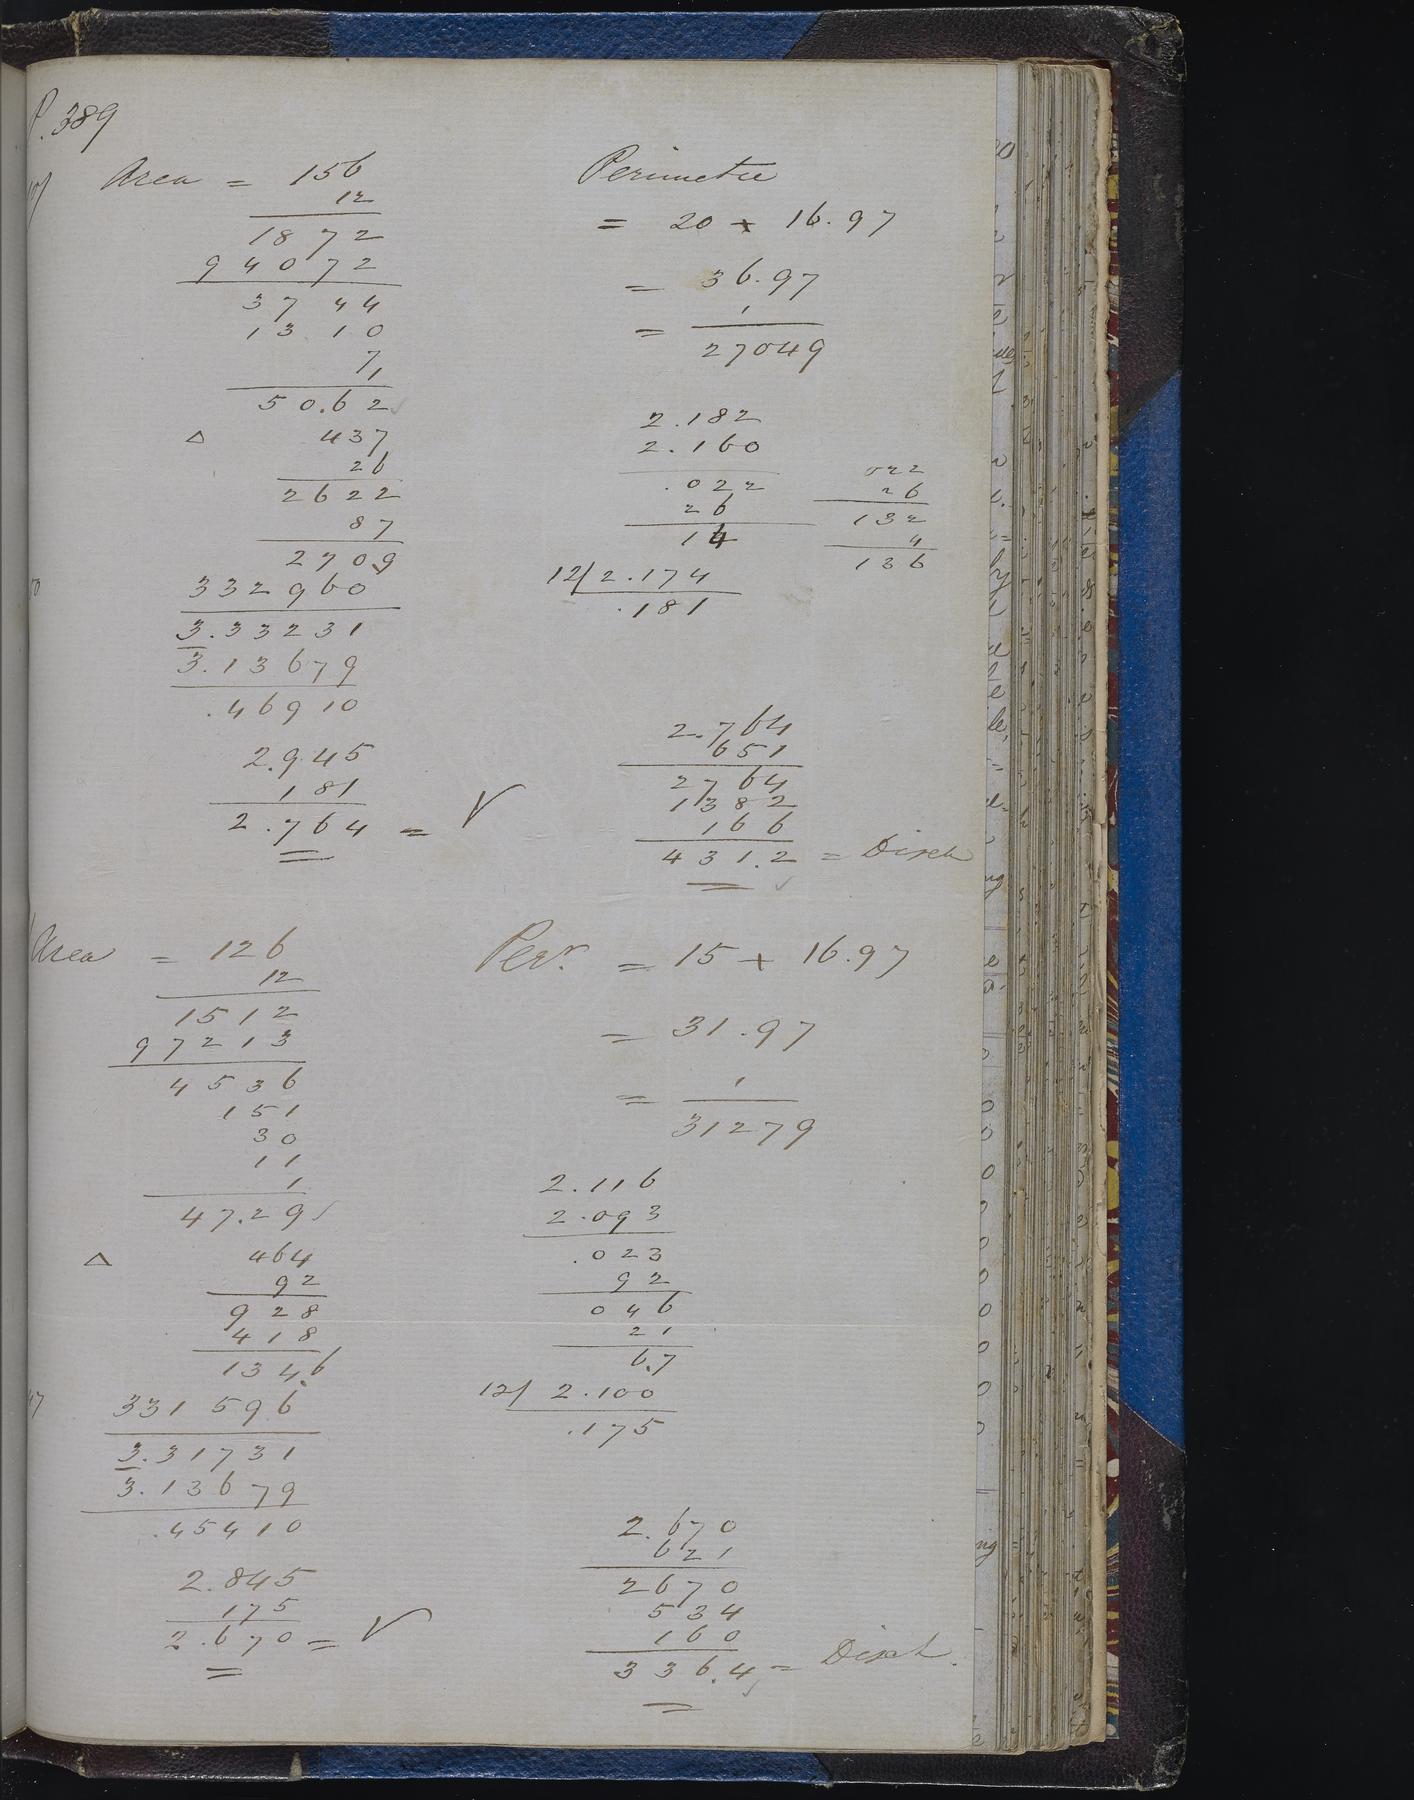 P. 389
Area = 156
12
1872
94072
3744
1310
7,
50.62
△ 437
26
2622
87
2709
332960
3.33231
3.13679
.46910
2.945
181
2.764 = V
Perimeter
= 20 + 16.97
= 36.97
= 1
27049
2.182
2.160
.022
26
14
12/2.174
.181
022
26
132
4
136
2.764
651
2764
1382
166
4312 = Disch
Area = 126
12
1512
97213
4536
151
30
11
1
47.29
△ 464
92
928
418
134.6
331596
3.31731
3.13679
.45410
2.845
175
2.670 = V
Perr. = 15 + 16.97
= 31.97
= 1
31279
2.116
2.093
.023
92
046
21
6.7
12/ 2.100
.175
2.670
621
2670
534
160
336.4 = Disch.